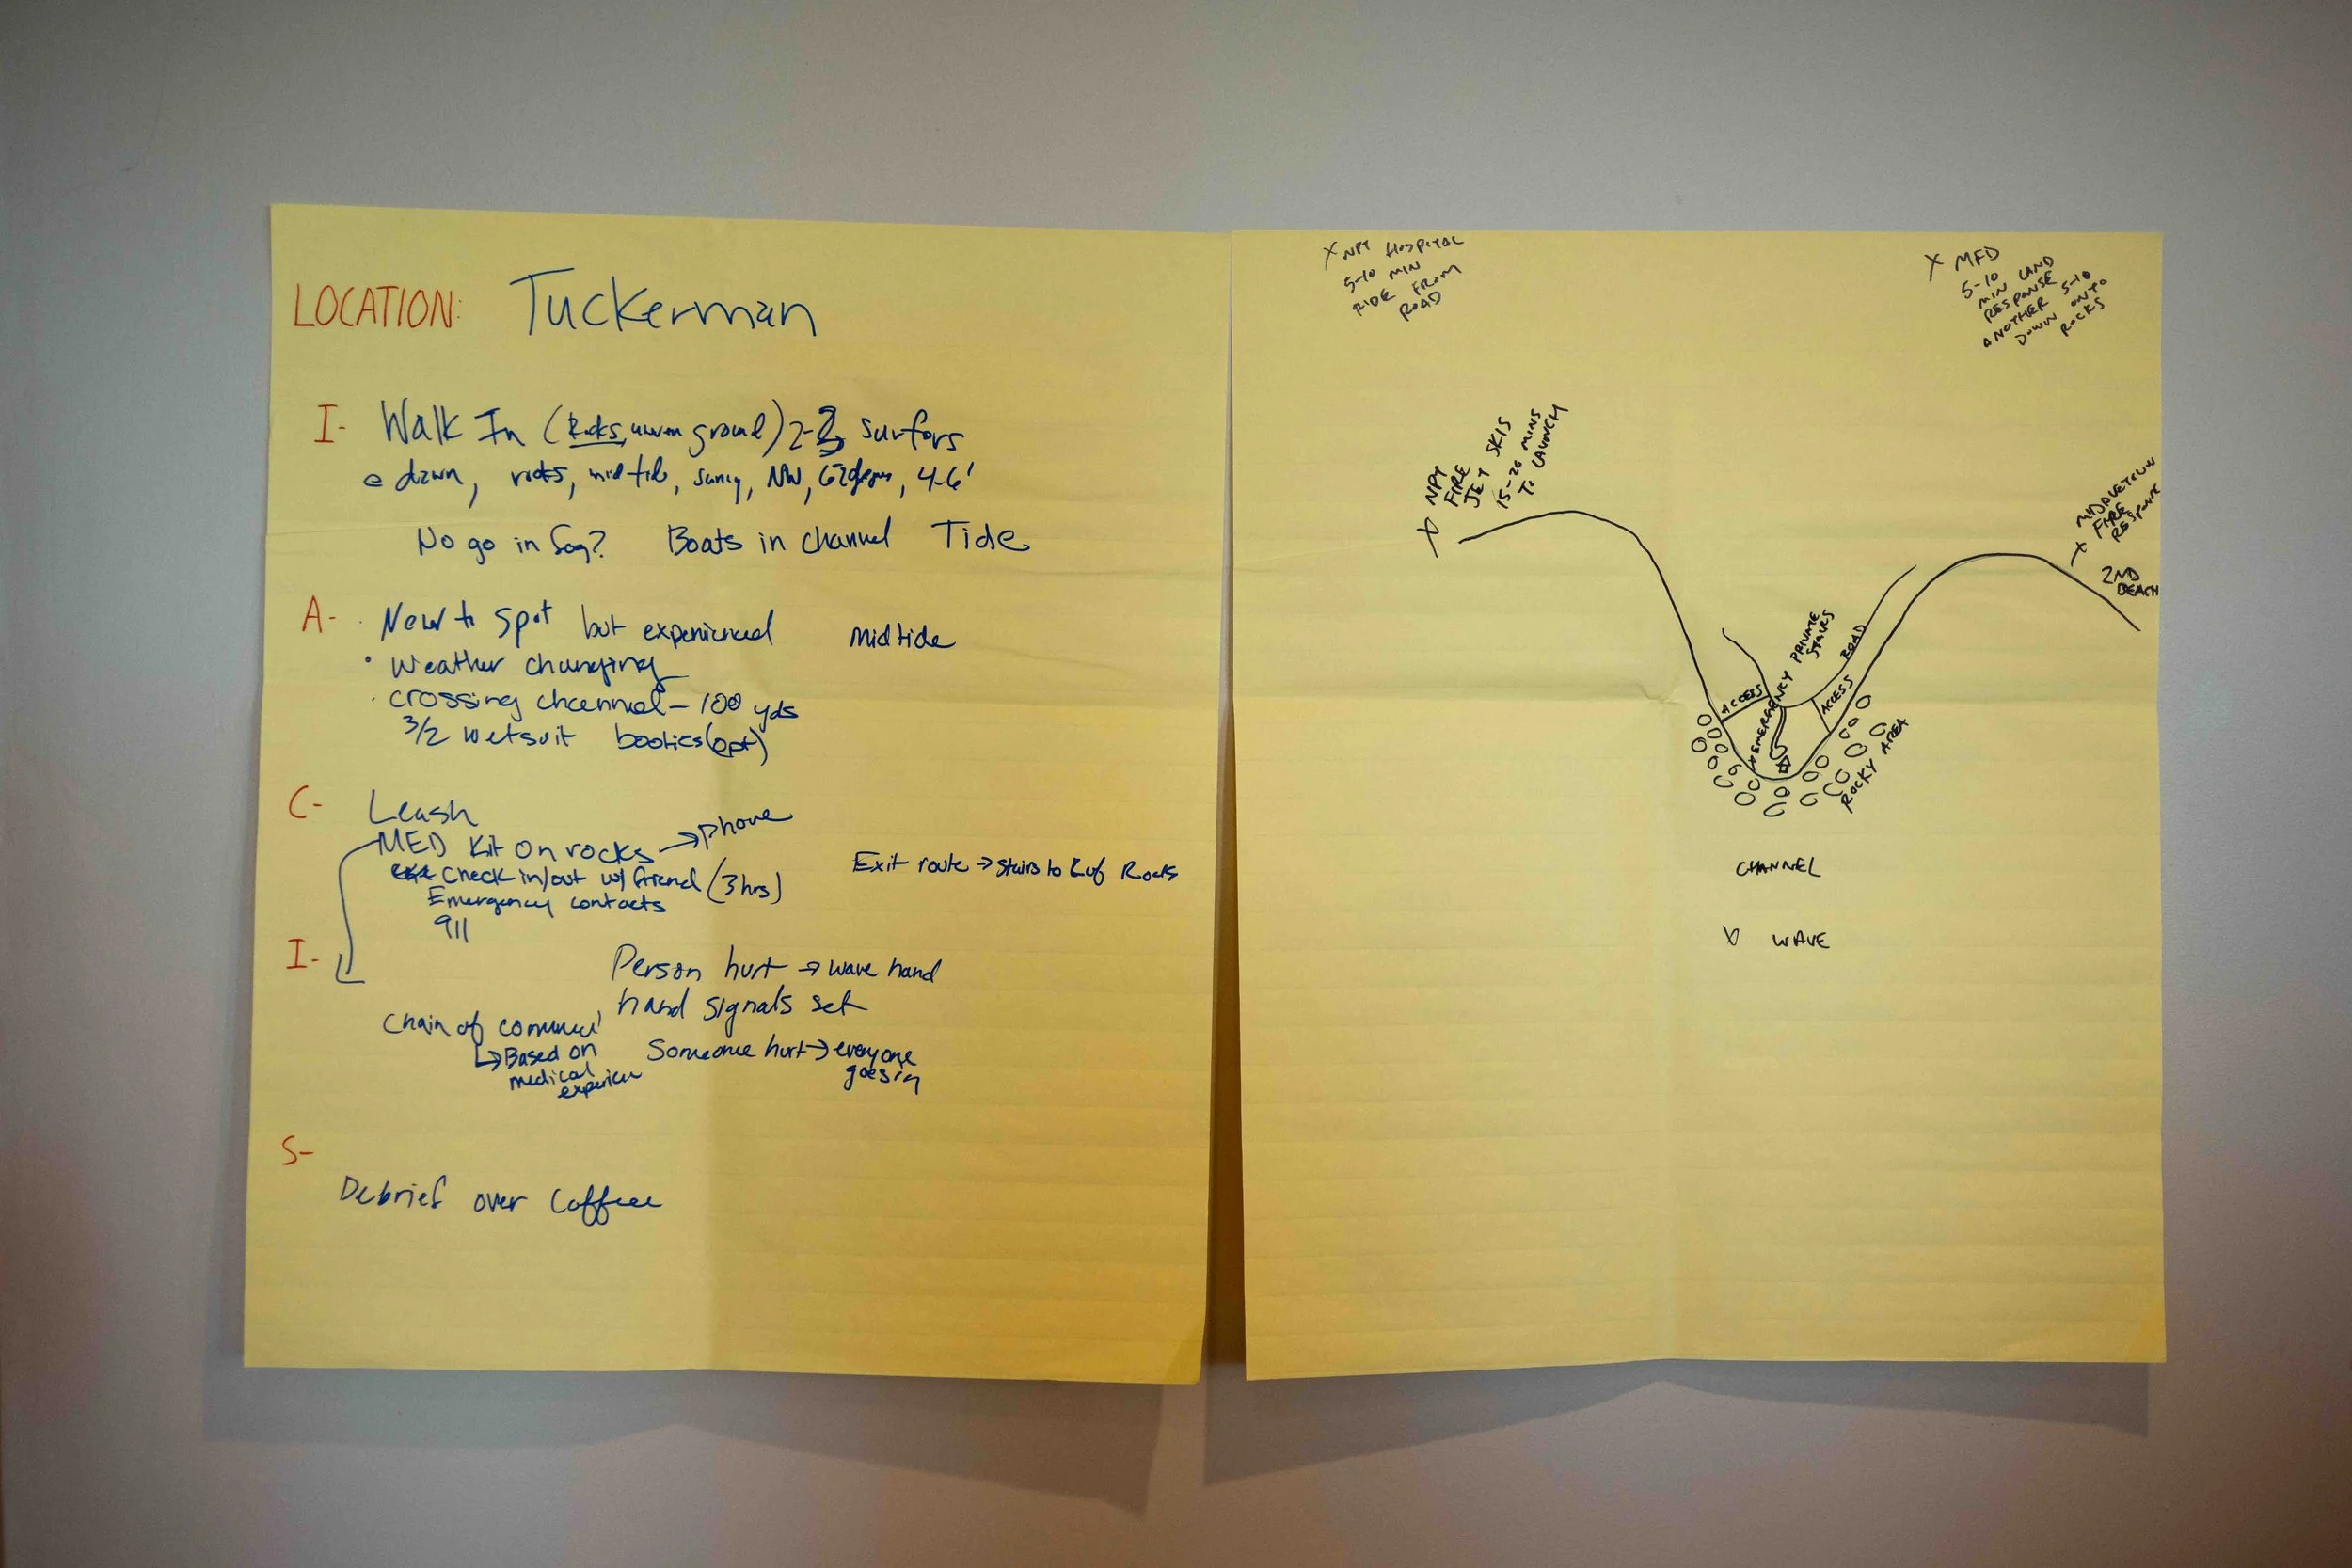 LOCATION: Tuckerman
I- Walk In (Rocks, uneven ground) 2-3 surfors
dawn, rocks, mid tide, sunny, NW, 62degrees, 4-6'
No go in fog? Boats in channel Tide
A- New to spot but experienced midtide
Weather changing
crossing channel - 100 yds
3/2 wetsuit booties (opt)
C- Leash
MED Kit on rocks → phone
Check in/out w/ friend (3 hrs)
Emergency contacts
911
Exit route → stairs to L of Rocks
I-
Person hurt → wave hand
hand signals set
Chain of
↳ Based on
medical
Someone hurt → everyone
goes in
S-
Debrief over Coffee
X NPT HOSPITAL
5-10 MIN
RIDE FROM
ROAD
X MFD
5-10
MIN LAND
RESPONSE
ANOTHER 5-10
DOWN ONTO
ROCKS
X NPT
FIRE
JET SKIS
15-20 MINS
TO LAUNCH
X MIDDLETOWN
FIRE
RESPONSE
2ND
BEACH
PRIVATE
STAIRS
ROAD
ACCESS
EMERGENCY
ACCESS
ROCKY AREA
CHANNEL
WAVE